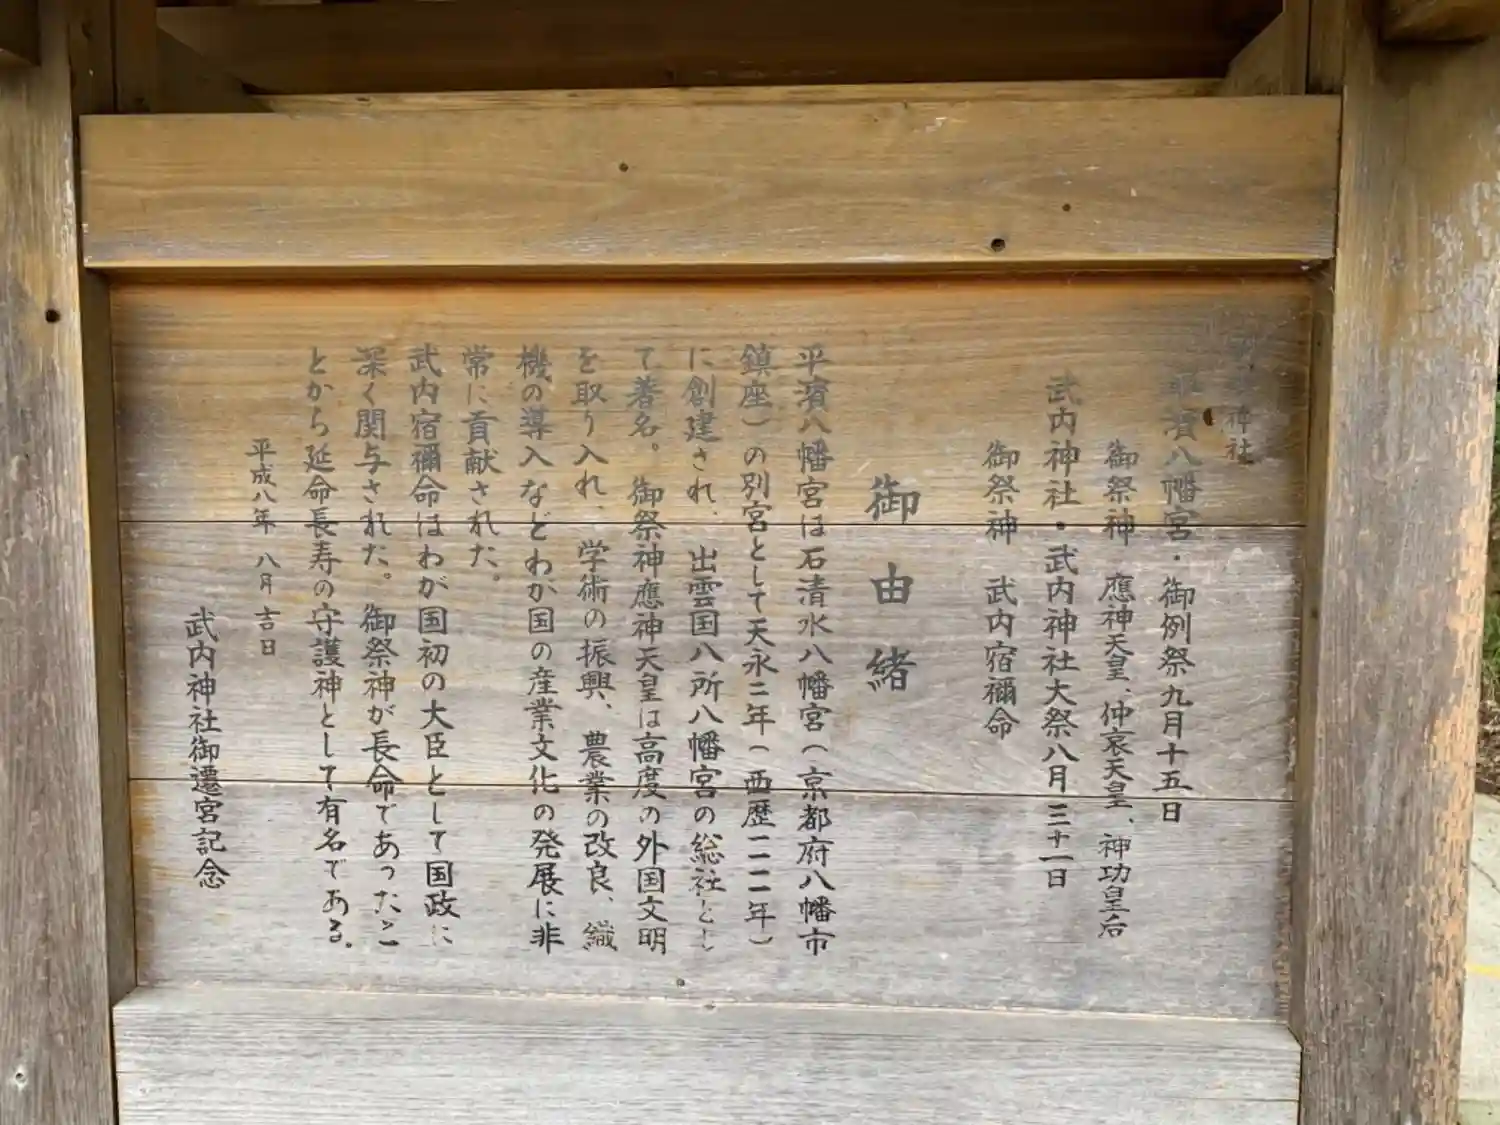 神社
平濱八幡宮・御例祭九月十五日
御祭神 應神天皇、仲哀天皇、神功皇后
武内神社・武内神社大祭八月三十一日
御祭神 武内宿禰命
御由緒
平濱八幡宮は石清水八幡宮(京都府八幡市
鎮座)の別宮として天永二年(西歴一一一一年)
に創建され、出雲国八所八幡宮の総社とし
て著名。御祭神應神天皇は高度の外国文明
を取り入れ、学術の振興、農業の改良、織
機の導入などわが国の産業文化の発展に非
常に貢献された。
武内宿禰命はわが国初の大臣として国政に
深く関与された。御祭神が長命であったこ
とから延命長寿の守護神として有名である。
平成八年 八月 吉日
武内神社御遷宮記念